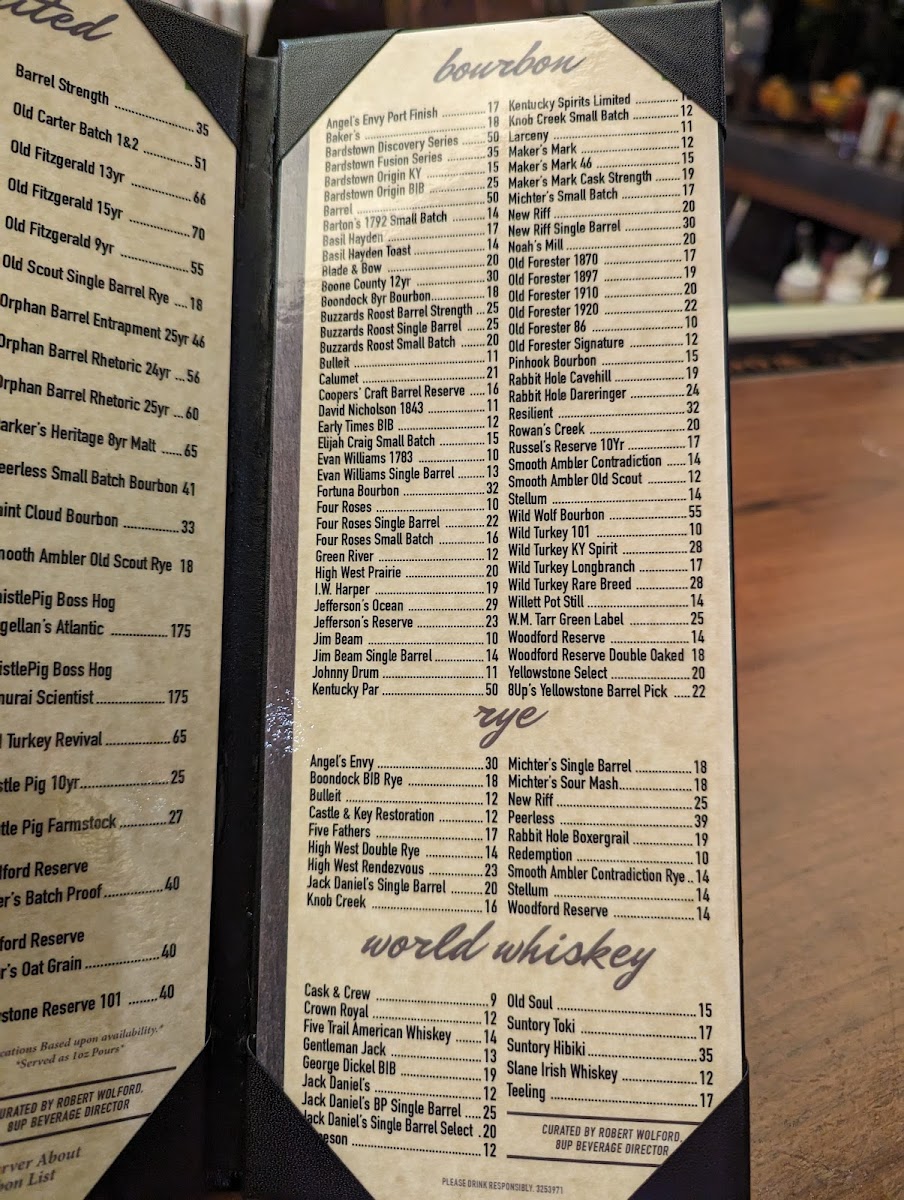 Barrel Strength 35
Old Carter Batch 1&2 51
Old Fitzgerald 13yr 66
Old Fitzgerald 15yr 70
Old Fitzgerald 9yr 55
Old Scout Single Barrel Rye 18
Orphan Barrel Entrapment 25yr 46
Orphan Barrel Rhetoric 24yr 56
Orphan Barrel Rhetoric 25yr 60
arker's Heritage 8yr Malt 65
eerless Small Batch Bourbon 41
aint Cloud Bourbon 33
mooth Ambler Old Scout Rye 18
histlePig Boss Hog
gellan's Atlantic 175
istlePig Boss Hog
murai Scientist 175
Turkey Revival 65
stle Pig 10yr 25
tle Pig Farmstock 27
dford Reserve
er's Batch Proof 40
ford Reserve
r's Oat Grain 40
stone Reserve 101 40
cations Based upon availability.*
*Served as 1oz Pours*
URATED BY ROBERT WOLFORD,
8UP BEVERAGE DIRECTOR
rver About
bon List
bourbon
Angel's Envy Port Finish 17
Baker's 18
Bardstown Discovery Series 50
Bardstown Fusion Series 35
Bardstown Origin KY 15
Bardstown Origin BIB 25
Barrel 50
Barton's 1792 Small Batch 14
Basil Hayden 17
Basil Hayden Toast 14
Blade & Bow 20
Boone County 12yr 30
Boondock 8yr Bourbon 18
Buzzards Roost Barrel Strength 25
Buzzards Roost Single Barrel 25
Buzzards Roost Small Batch 20
Bulleit 11
Calumet 21
Coopers' Craft Barrel Reserve 16
David Nicholson 1843 11
Early Times BIB 12
Elijah Craig Small Batch 15
Evan Williams 1783 10
Evan Williams Single Barrel 13
Fortuna Bourbon 32
Four Roses 10
Four Roses Single Barrel 22
Four Roses Small Batch 16
Green River 12
High West Prairie 20
I.W. Harper 19
Jefferson's Ocean 29
Jefferson's Reserve 23
Jim Beam 10
Jim Beam Single Barrel 14
Johnny Drum 11
Kentucky Par 50
Kentucky Spirits Limited
Knob Creek Small Batch 12
Larceny 11
Maker's Mark 12
Maker's Mark 46 15
Maker's Mark Cask Strength 19
Michter's Small Batch 17
New Riff 20
New Riff Single Barrel 30
Noah's Mill 20
Old Forester 1870 17
Old Forester 1897 19
Old Forester 1910 20
Old Forester 1920 22
Old Forester 86 10
Old Forester Signature 12
Pinhook Bourbon 15
Rabbit Hole Cavehill 19
Rabbit Hole Dareringer 24
Resilient 32
Rowan's Creek 20
Russel's Reserve 10Yr 17
Smooth Ambler Contradiction 14
Smooth Ambler Old Scout 12
Stellum 14
Wild Wolf Bourbon 55
Wild Turkey 101 10
Wild Turkey KY Spirit 28
Wild Turkey Longbranch 17
Wild Turkey Rare Breed 28
Willett Pot Still 14
W.M. Tarr Green Label 25
Woodford Reserve 14
Woodford Reserve Double Oaked 18
Yellowstone Select 20
8Up's Yellowstone Barrel Pick 22
rye
Angel's Envy 30
Boondock BIB Rye 18
Bulleit 12
Castle & Key Restoration 12
Five Fathers 17
High West Double Rye 14
High West Rendezvous 23
Jack Daniel's Single Barrel 20
Knob Creek 16
Michter's Single Barrel 18
Michter's Sour Mash 18
New Riff 25
Peerless 39
Rabbit Hole Boxergrail 19
Redemption 10
Smooth Ambler Contradiction Rye 14
Stellum 14
Woodford Reserve 14
world whiskey
Cask & Crew 9
Crown Royal 12
Five Trail American Whiskey 14
Gentleman Jack 13
George Dickel BIB 19
Jack Daniel's 12
Jack Daniel's BP Single Barrel 25
Jack Daniel's Single Barrel Select 20
eson 12
Old Soul 15
Suntory Toki 17
Suntory Hibiki 35
Slane Irish Whiskey 12
Teeling 17
CURATED BY ROBERT WOLFORD,
8UP BEVERAGE DIRECTOR
PLEASE DRINK RESPONSIBLY. 3253971